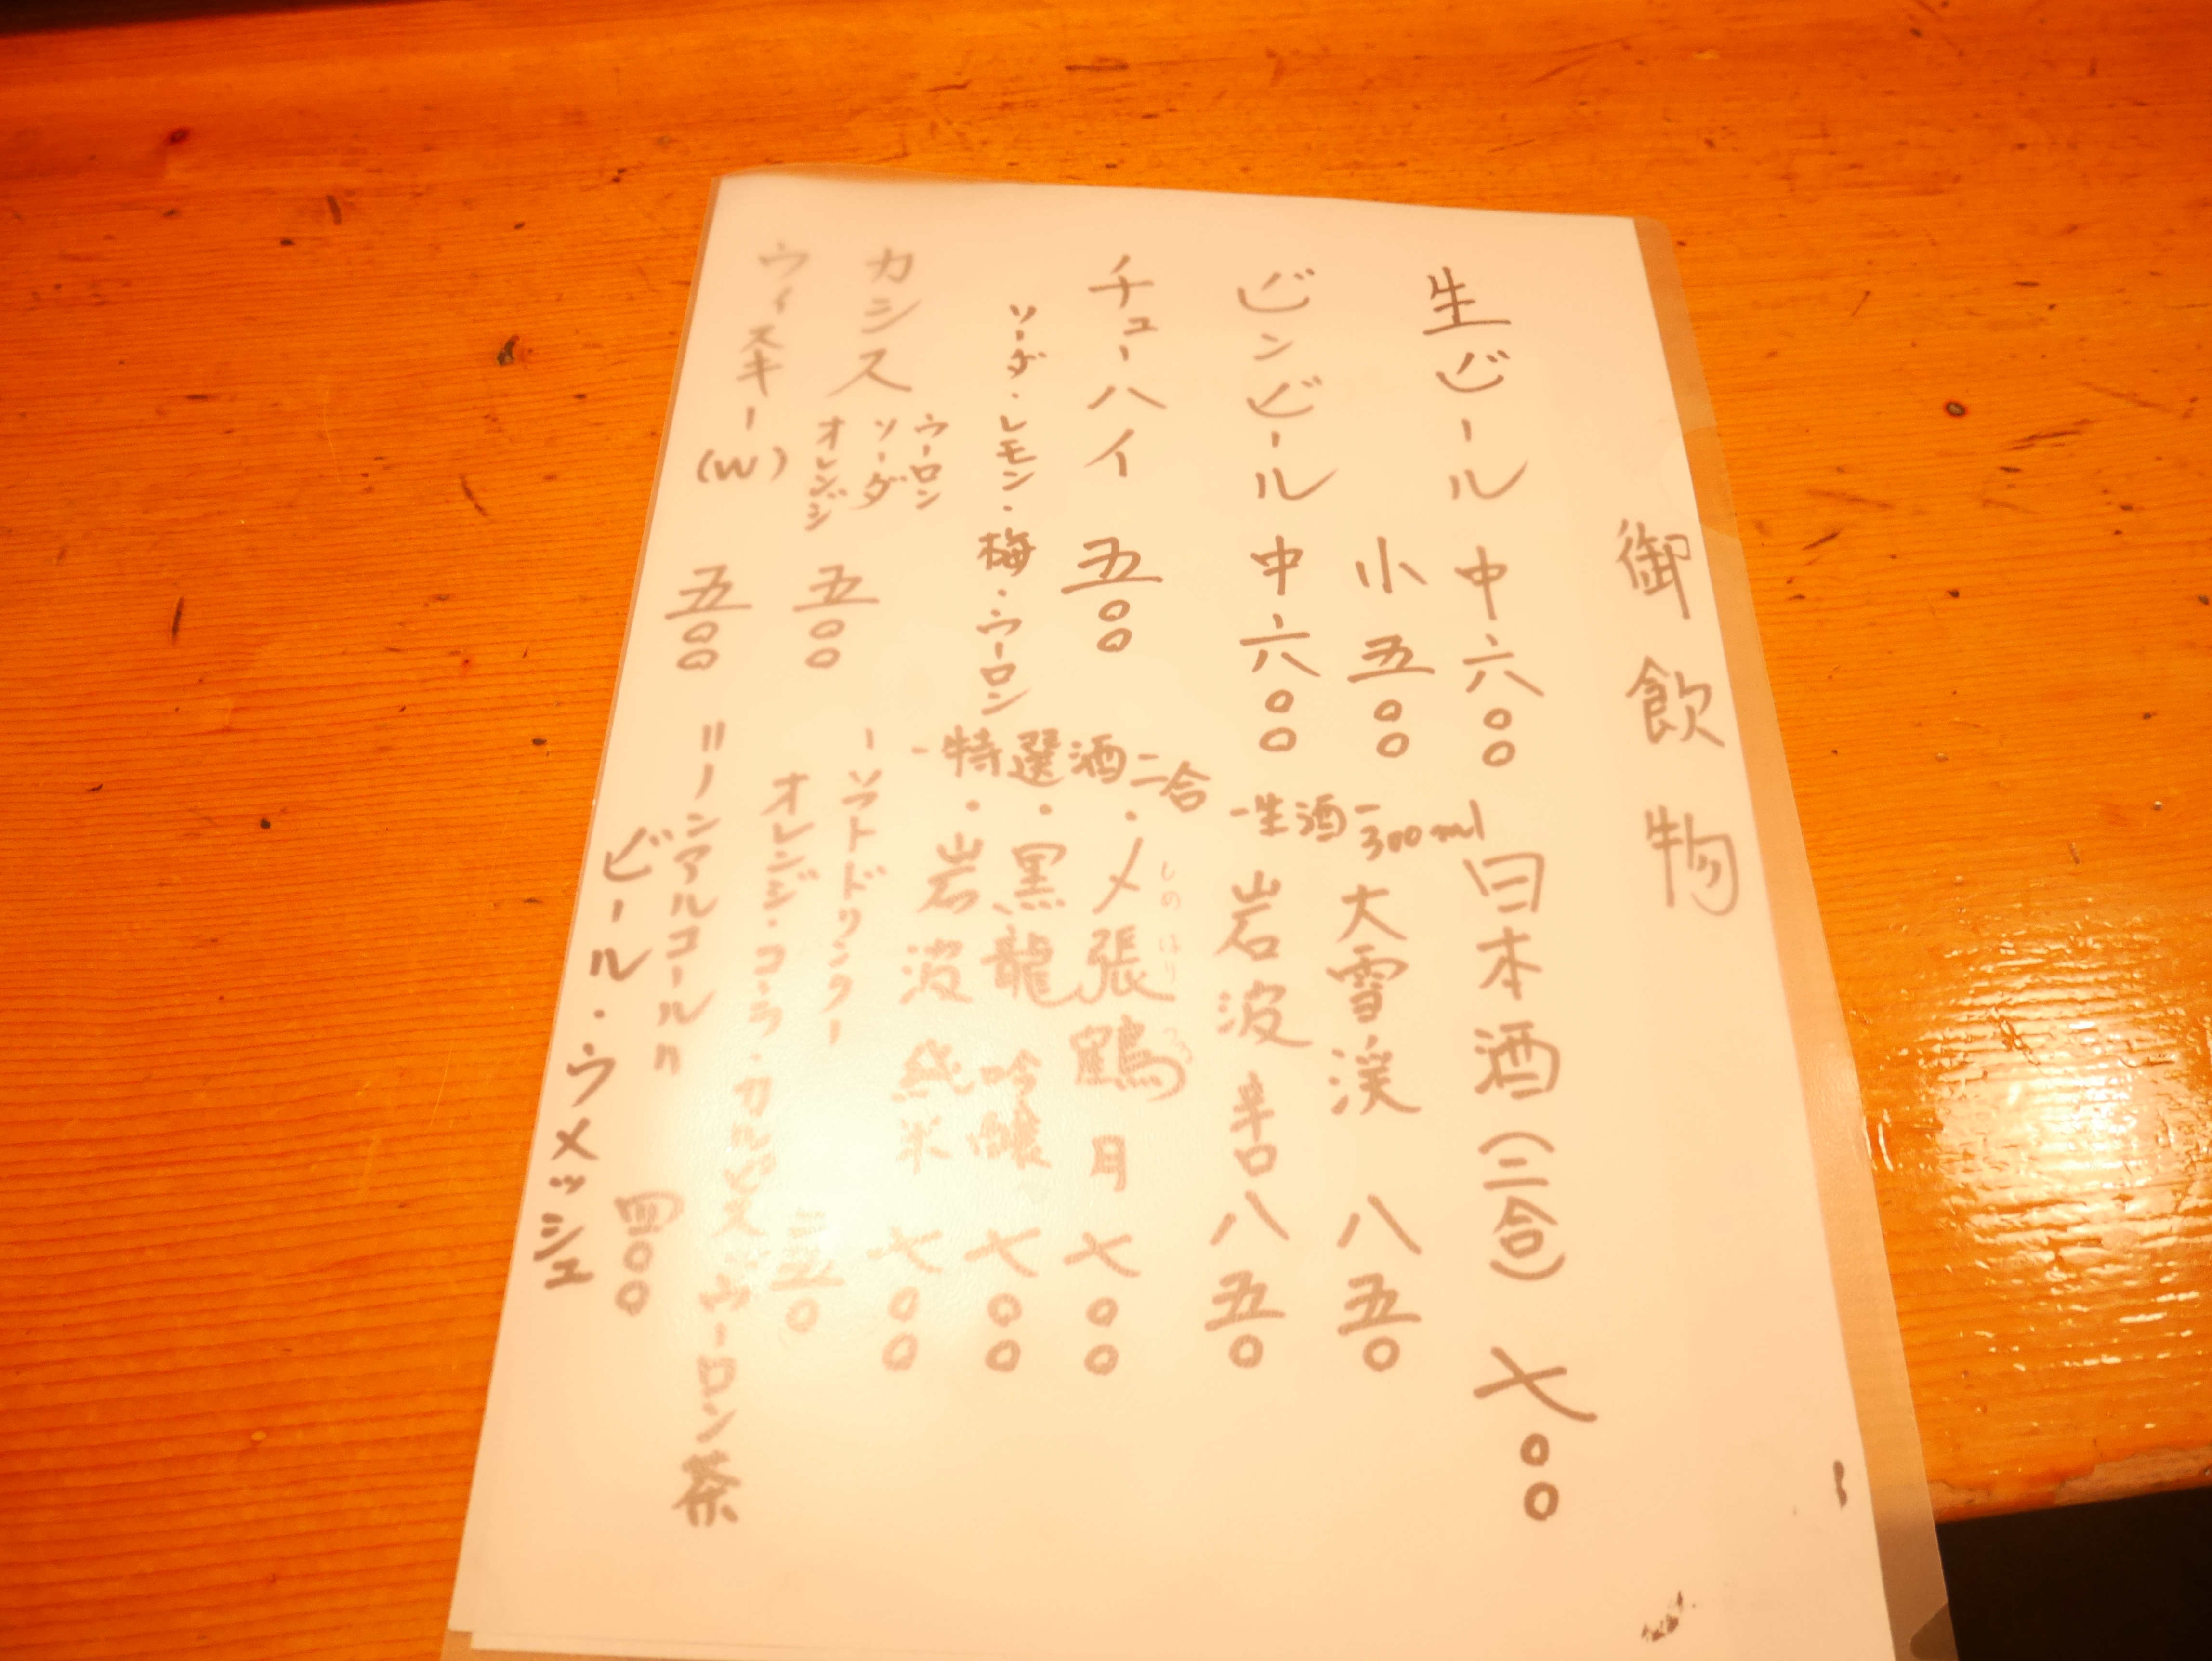 御飲物
生ビール 中 六〇〇
小 五〇〇
ビンビール 中 六〇〇
チューハイ 五〇〇
ソーダ・レモン・梅・ウーロン
カシス ウーロン ソーダ オレンジ 五〇〇
ウィスキー(W) 五〇〇
日本酒(二合) 七〇〇
-生酒- 300ml
大雪渓 八五〇
岩波 辛口 八五〇
-特選酒二合
・〆張鶴 月 七〇〇
しめはりつる
・黒龍 吟醸 七〇〇
・岩波 純米 七〇〇
-ソフトドリンク- 三五〇
オレンジ・コーラ・カルピス・ウーロン茶
〃ノンアルコール〃 四〇〇
ビール・ウメッシュ